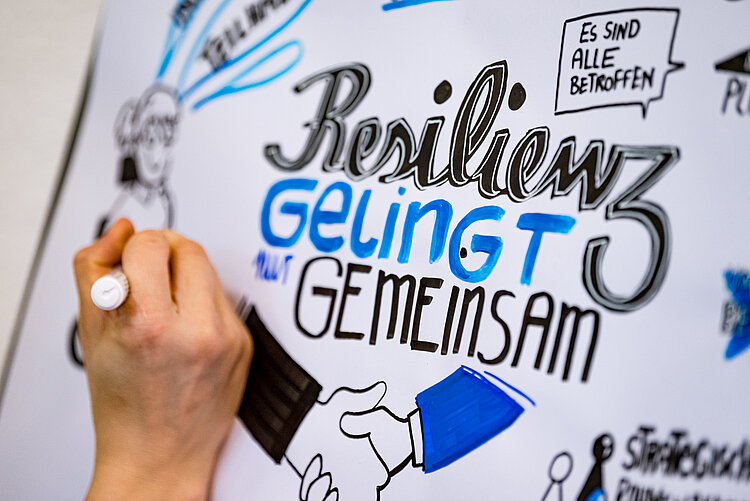 TEILHABE
ES SIND
ALLE
BETROFFEN
Resilienz
GELINGT
NUR
GEMEINSAM
STRATEGISCH